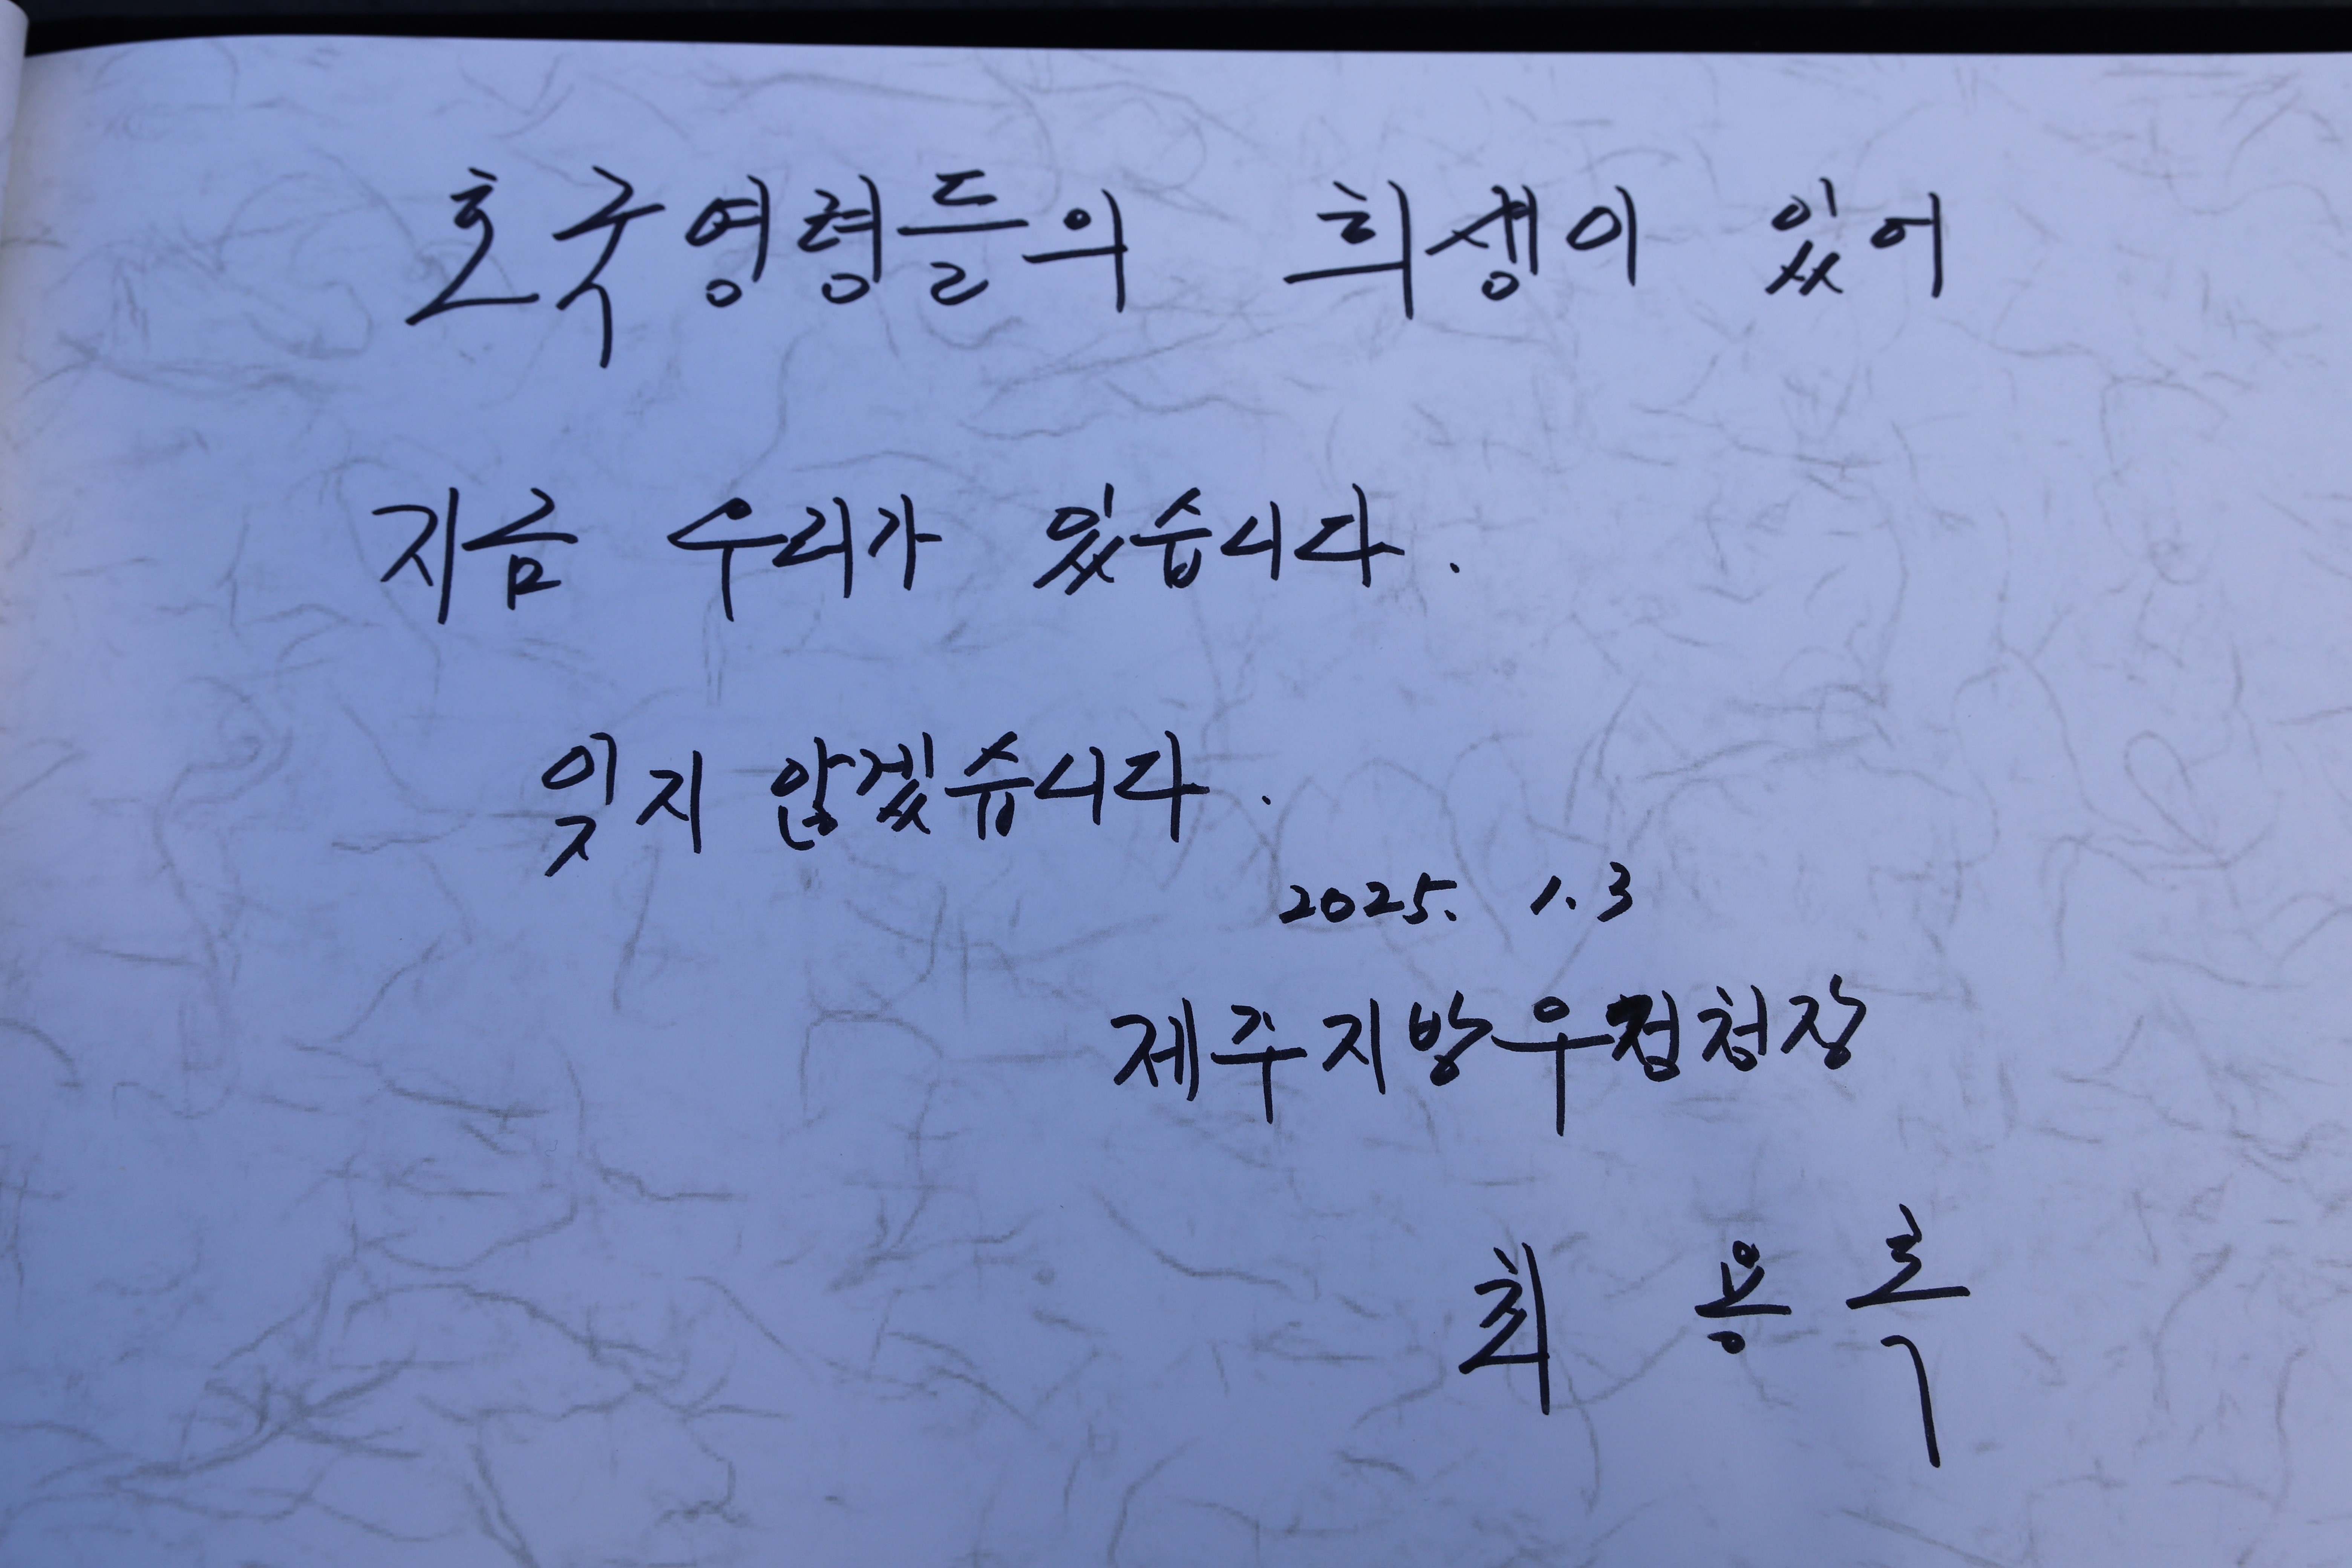 호국영령들의 희생이 있어
지금 우리가 있습니다.
잊지 않겠습니다.
2025. 1. 3
제주지방우정청장
최 용 록